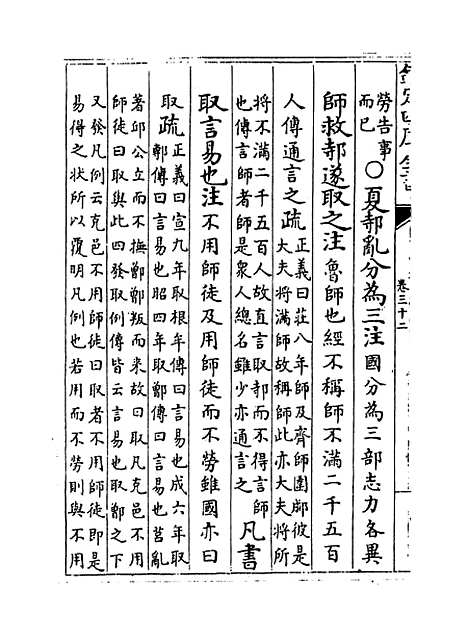 欽定四庫全書
卷三十二
勞告事
而已
○夏邿亂分為三注國分為三部志力各異
師救邿遂取之注魯師也經不稱師不滿二千五百
人傳通言之疏
正義曰莊八年師及齊師圍郕彼是
大夫將滿師故稱師此亦大夫將所
將不滿二千五百人故直言取邿而不得言師
也傳言師者師是衆人總名雖少亦通言之
凡書
取言易也注不用師徒及用師徒而不勞雖國亦曰
取疏
正義曰宣九年取根牟傳曰言易也成六年取
鄟傳曰言易也昭四年取鄫傳曰言易也莒亂
著邱公立而不撫鄫鄫叛而来故曰取凡克邑不用
師徒曰取與此四發取例傳皆云言易也取鄫之下
又發凡例云克邑不用師徒曰取者不用師徒即是
易得之狀所以覆明凡例也若用而不勞則與不用